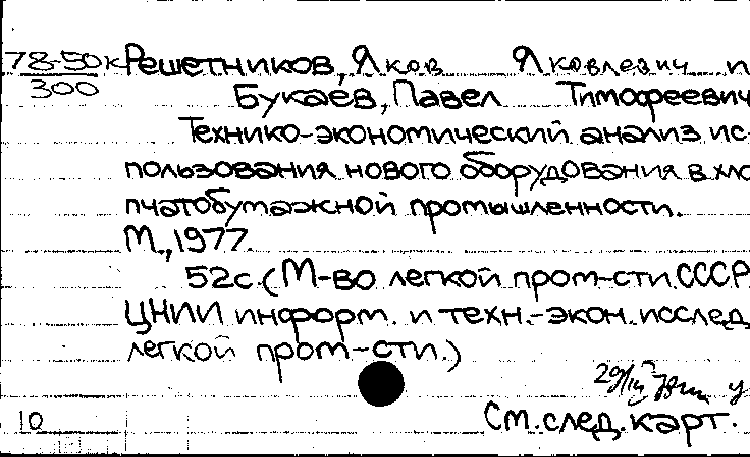 78-50к Решетников, Яков Яковлевич и
300 Букаев, Павел Тимофеевич
Технико-экономический анализ ис-
пользования нового оборудования в хло
пчатобумажной промышленности.
М., 1977.
52с. (М-во легкой пром-сти СССР
ЦНИИ информ. и техн.-экон. исслед
легкой пром-сти.)
10 См. след. карт.